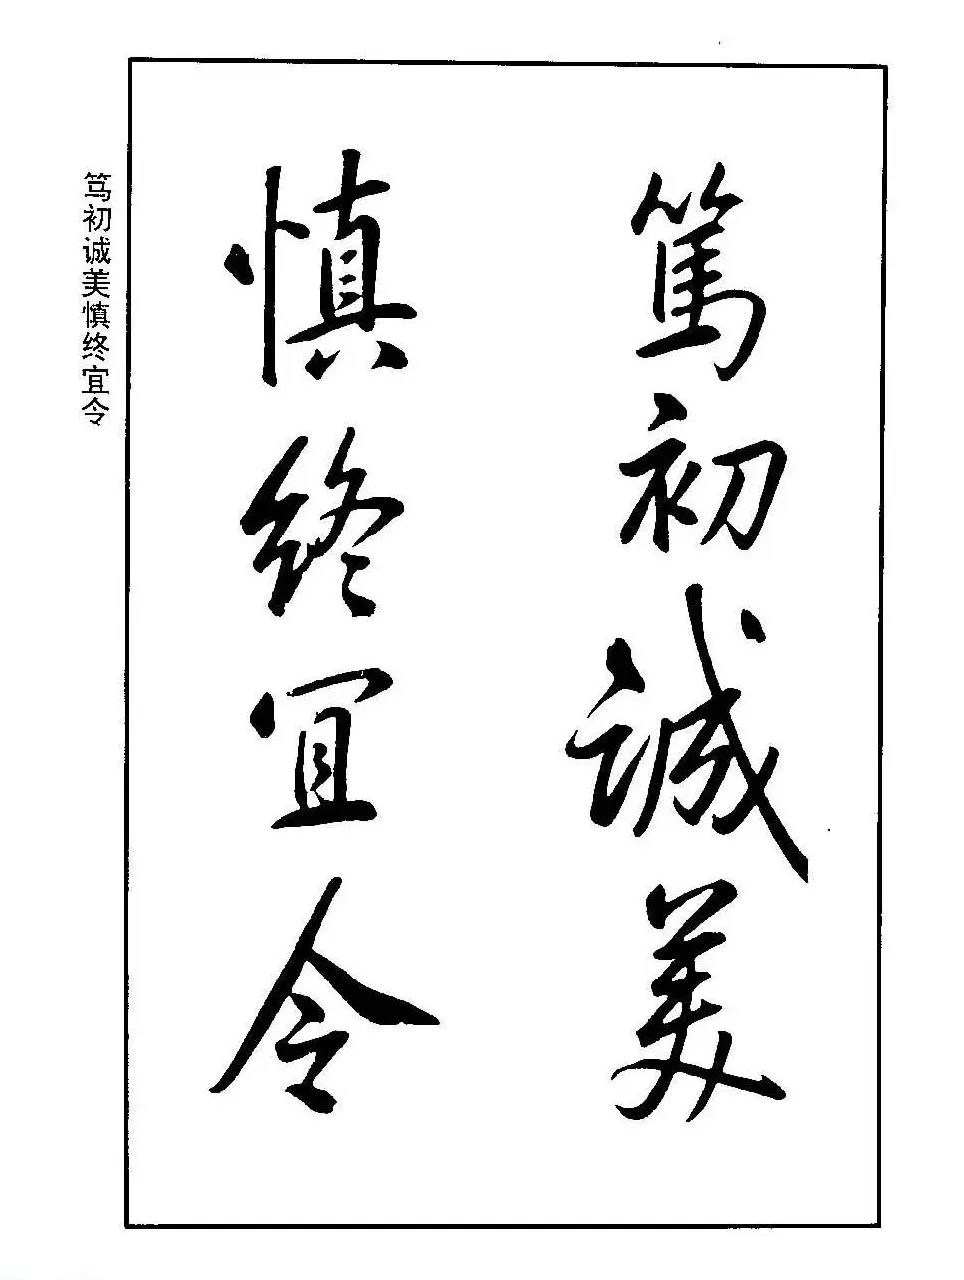 篤初誠美
慎終宜令
笃初诚美慎终宜令